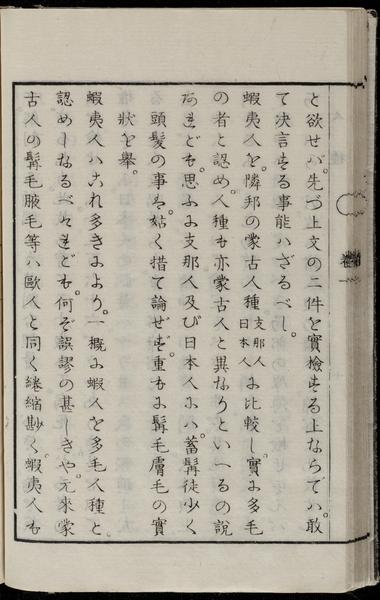 と欲せバ。先づ上文の二件を實檢する上ならでハ。敢
て决言する事能ハざるべし。
蝦夷人を。隣邦の蒙古人種支那人日本人に比較し。實に多毛
の者と認め。人種も亦蒙古人と異なりといへるの説
あれども。思ふに支那人及び日本人にハ。蓄髯徒少く
頭髮の事は。姑く措て論ぜず。重もに髯毛膚毛の實
狀を擧。
蝦夷人ハこれ多きにより。一概に蝦人を多毛人種と
認めしなるべけれども。何ぞ誤謬の甚しきや。元來蒙
古人の髯毛腋毛等ハ歐人と同く綣縮尠く。蝦夷人も